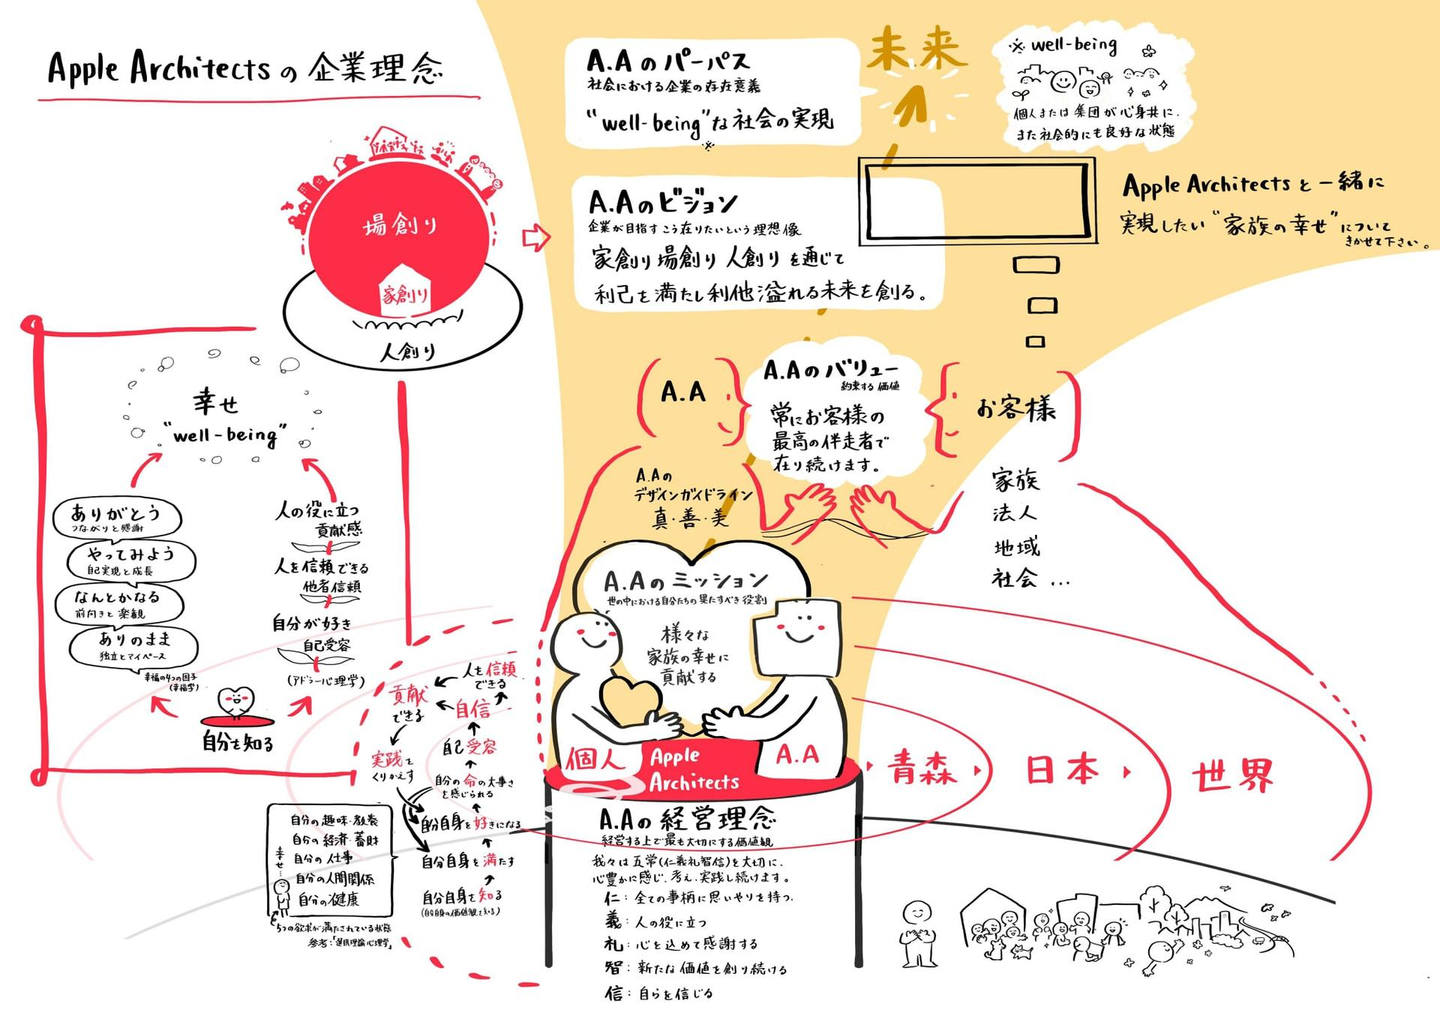 Apple Architectsの企業理念
場創り
家創り
人創り
A.Aのパーパス
社会における企業の存在意義
"well-being"な社会の実現
※
未来
※well-being
個人または集団が心身共に、
また社会的にも良好な状態
A.Aのビジョン
企業が目指すこう在りたいという理想像
家創り場創り人創りを通じて
利己を満たし利他溢れる未来を創る。
Apple Architectsと一緒に
実現したい"家族の幸せ"について
きかせて下さい。
A.A
A.Aのバリュー
約束する価値
常にお客様の
最高の伴走者で
在り続けます。
お客様
家族
法人
地域
社会…
A.Aの
デザインガイドライン
真・善・美
幸せ
"well-being"
ありがとう
つながりと感謝
やってみよう
自己実現と成長
なんとかなる
前向きと楽観
ありのまま
独立とマイペース
幸福の4つの因子
(幸福学)
人の役に立つ
貢献感
人を信頼できる
他者信頼
自分が好き
自己受容
(アドラー心理学)
自分を知る
A.Aのミッション
世の中における自分たちの果たすべき役割
様々な
家族の幸せに
貢献する
個人
Apple
Architects
A.A
青森
日本
世界
人を信頼
できる
貢献
できる
自信
実践を
くりかえす
自己受容
自分の命の大事さ
を感じられる
自分自身を好きになる
自分自身を満たす
自分自身を知る
自分の趣味・教養
自分の経済・蓄財
自分の仕事
自分の人間関係
自分の健康
幸せ…
5つの欲求が満たされている状態
参考:「選択理論心理学」
A.Aの経営理念
経営する上で最も大切にする価値観
我々は五常(仁義礼智信)を大切に、
心豊かに感じ、考え、実践し続けます。
仁:全ての事柄に思いやりを持つ。
義:人の役に立つ
礼:心を込めて感謝する
智:新たな価値を創り続ける
信:自らを信じる